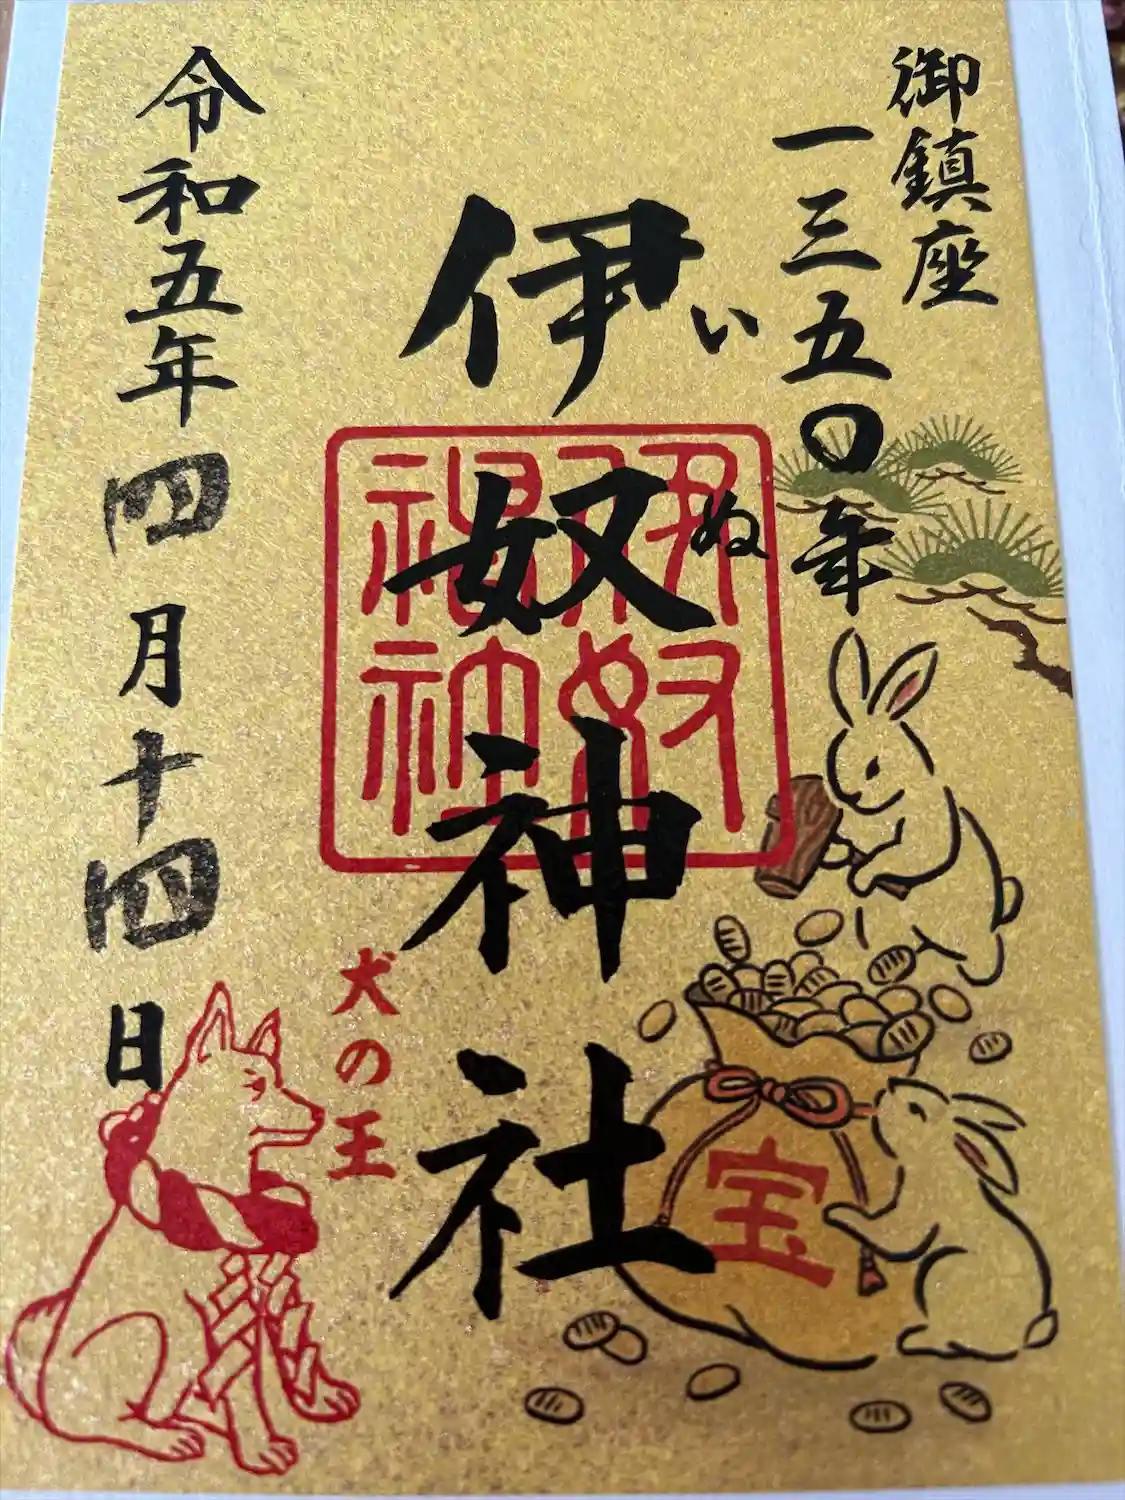 御鎮座
一三五〇年
伊奴神社
いぬ
伊奴
神社
令和五年四月十四日
犬の王
宝